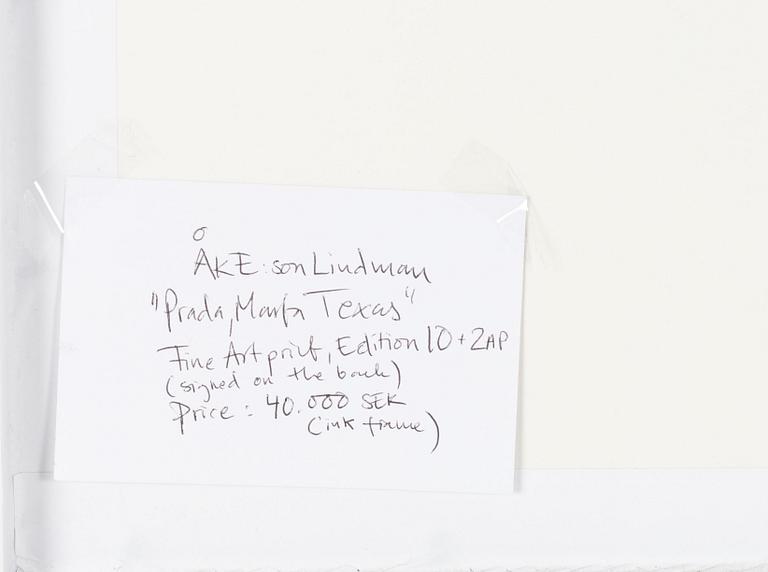 ÅKE:son Lindman
"Prada, Marfa Texas"
Fine Art print, Edition 10 + 2 AP
(signed on the back)
Price: 40.000 SEK
(ink frame)